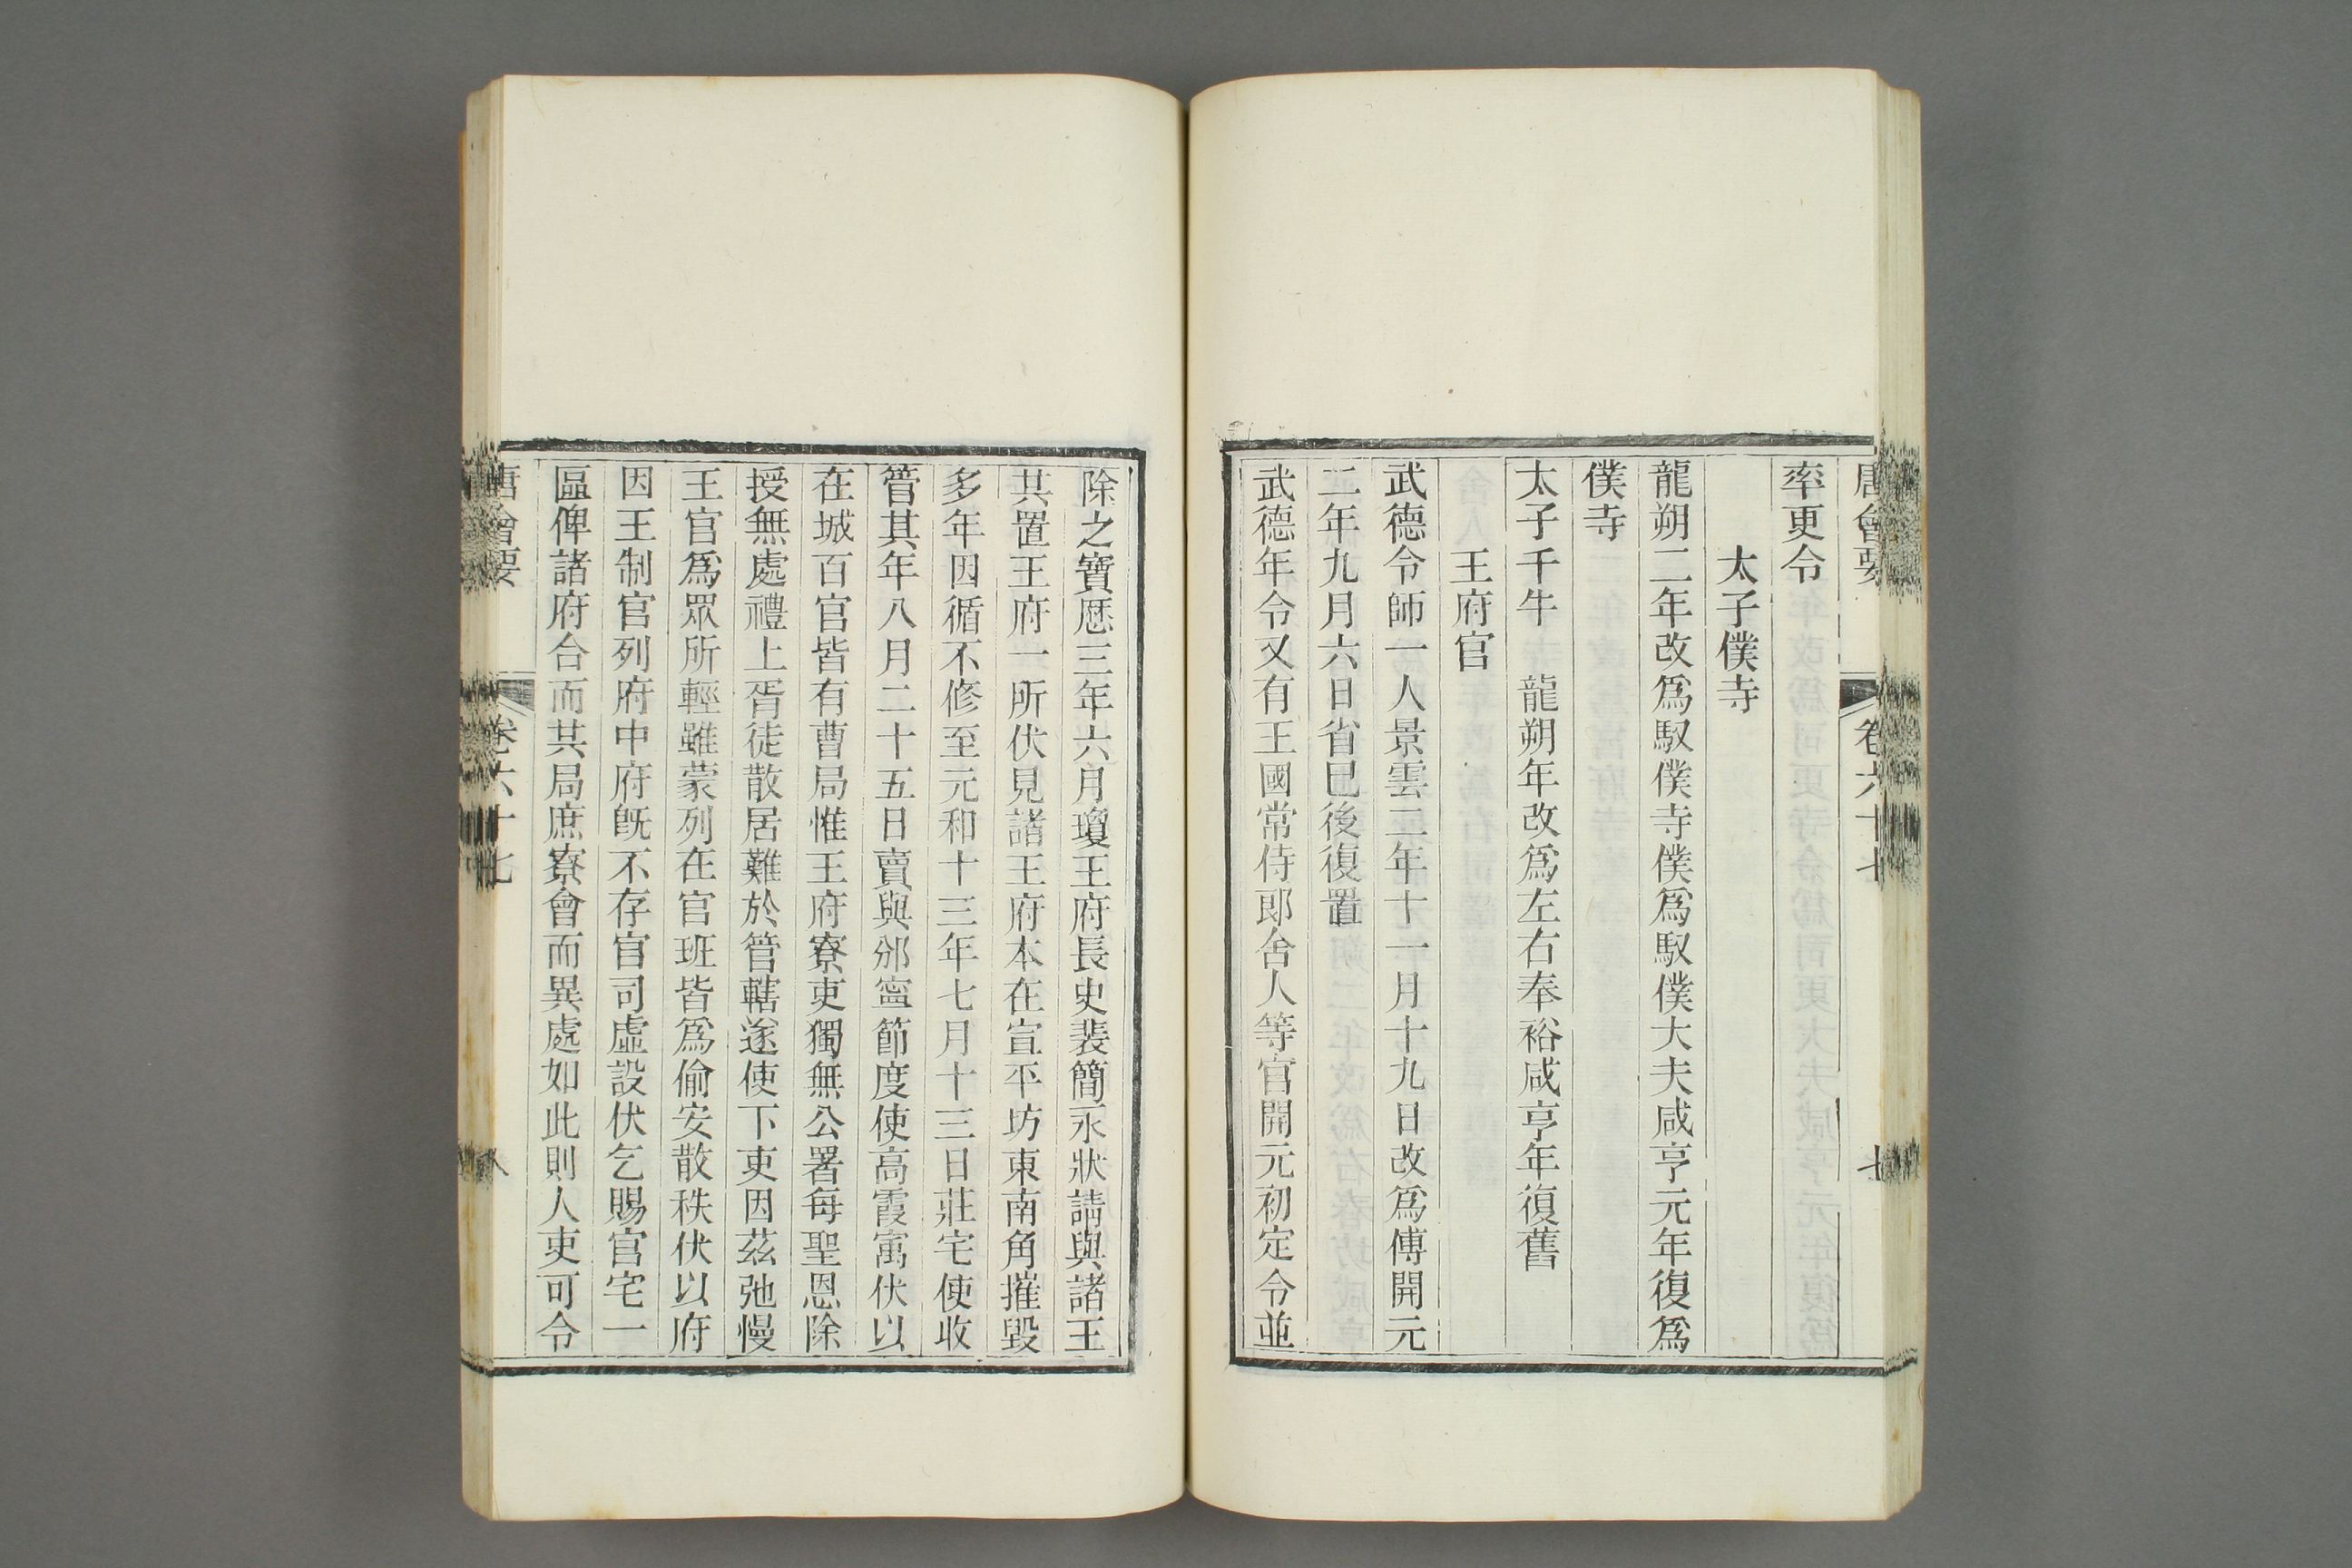 唐會要 卷六十七 七
率更令
太子僕寺
龍朔二年改爲馭僕寺僕爲馭僕大夫咸亨元年復爲
僕寺
太子千牛 龍朔年改爲左右奉裕咸亨年復舊
王府官
武德令師一人景雲二年十一月十九日改爲傅開元
二年九月六日省巳後復置
武德年令又有王國常侍郎舍人等官開元初定令並
除之寶厯三年六月瓊王府長史裴簡永狀請與諸王
共置王府一所伏見諸王府本在宣平坊東南角摧毀
多年因循不修至元和十三年七月十三日莊宅使收
管其年八月二十五日賣與邠寧節度使高霞寓伏以
在城百官皆有曹局惟王府寮吏獨無公署每聖恩除
授無處禮上胥徒散居難於管轄遂使下吏因茲弛慢
王官爲眾所輕雖蒙列在官班皆爲偷安散秩伏以府
因王制官列府中府旣不存官司虛設伏乞賜官宅一
區俾諸府合而共局庶寮會而異處如此則人吏可令
唐會要 卷六十七 八